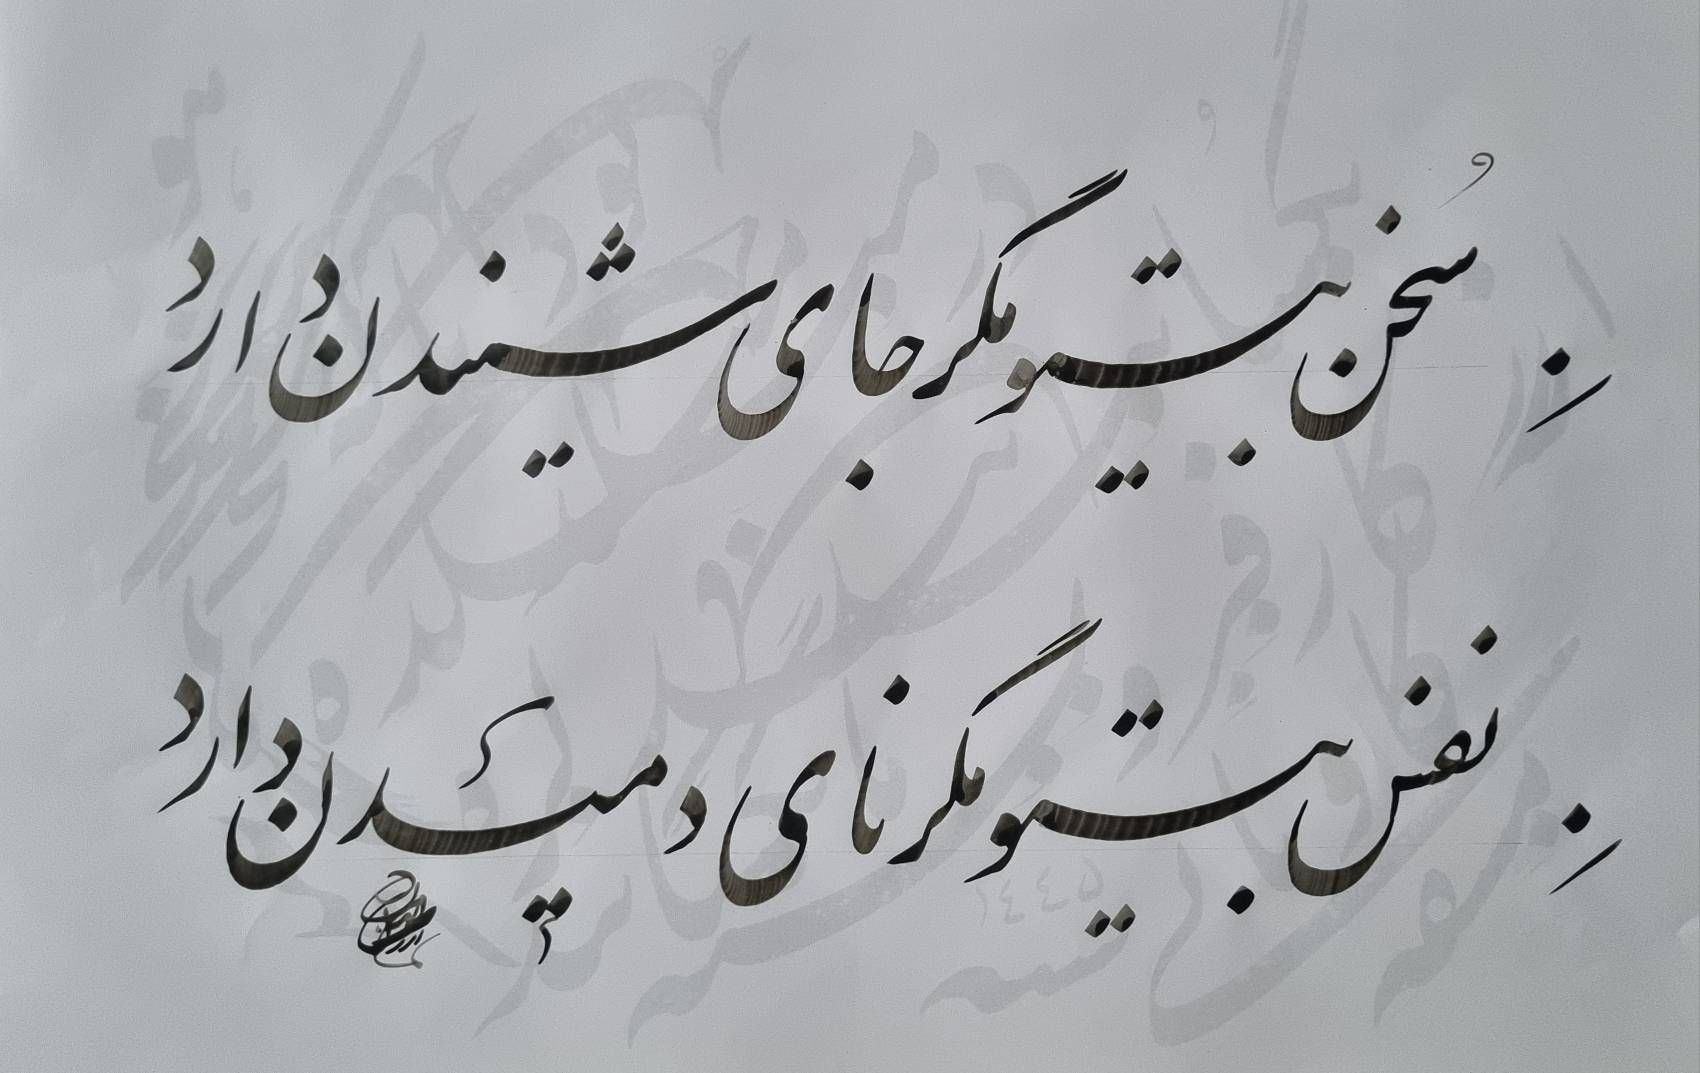 سُخن بیتو مگر جای شنیدن دارد
نفس بیتو مگر نای دمیدن دارد